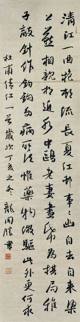 清江一曲抱村流長夏江村事事幽自去自來梁
上燕相親相近水中鷗老妻畫紙為棋局稚
子敲針作釣鉤多病所須唯藥物微軀此外更何求
杜甫清江一首歲次丁亥之冬龍開勝書